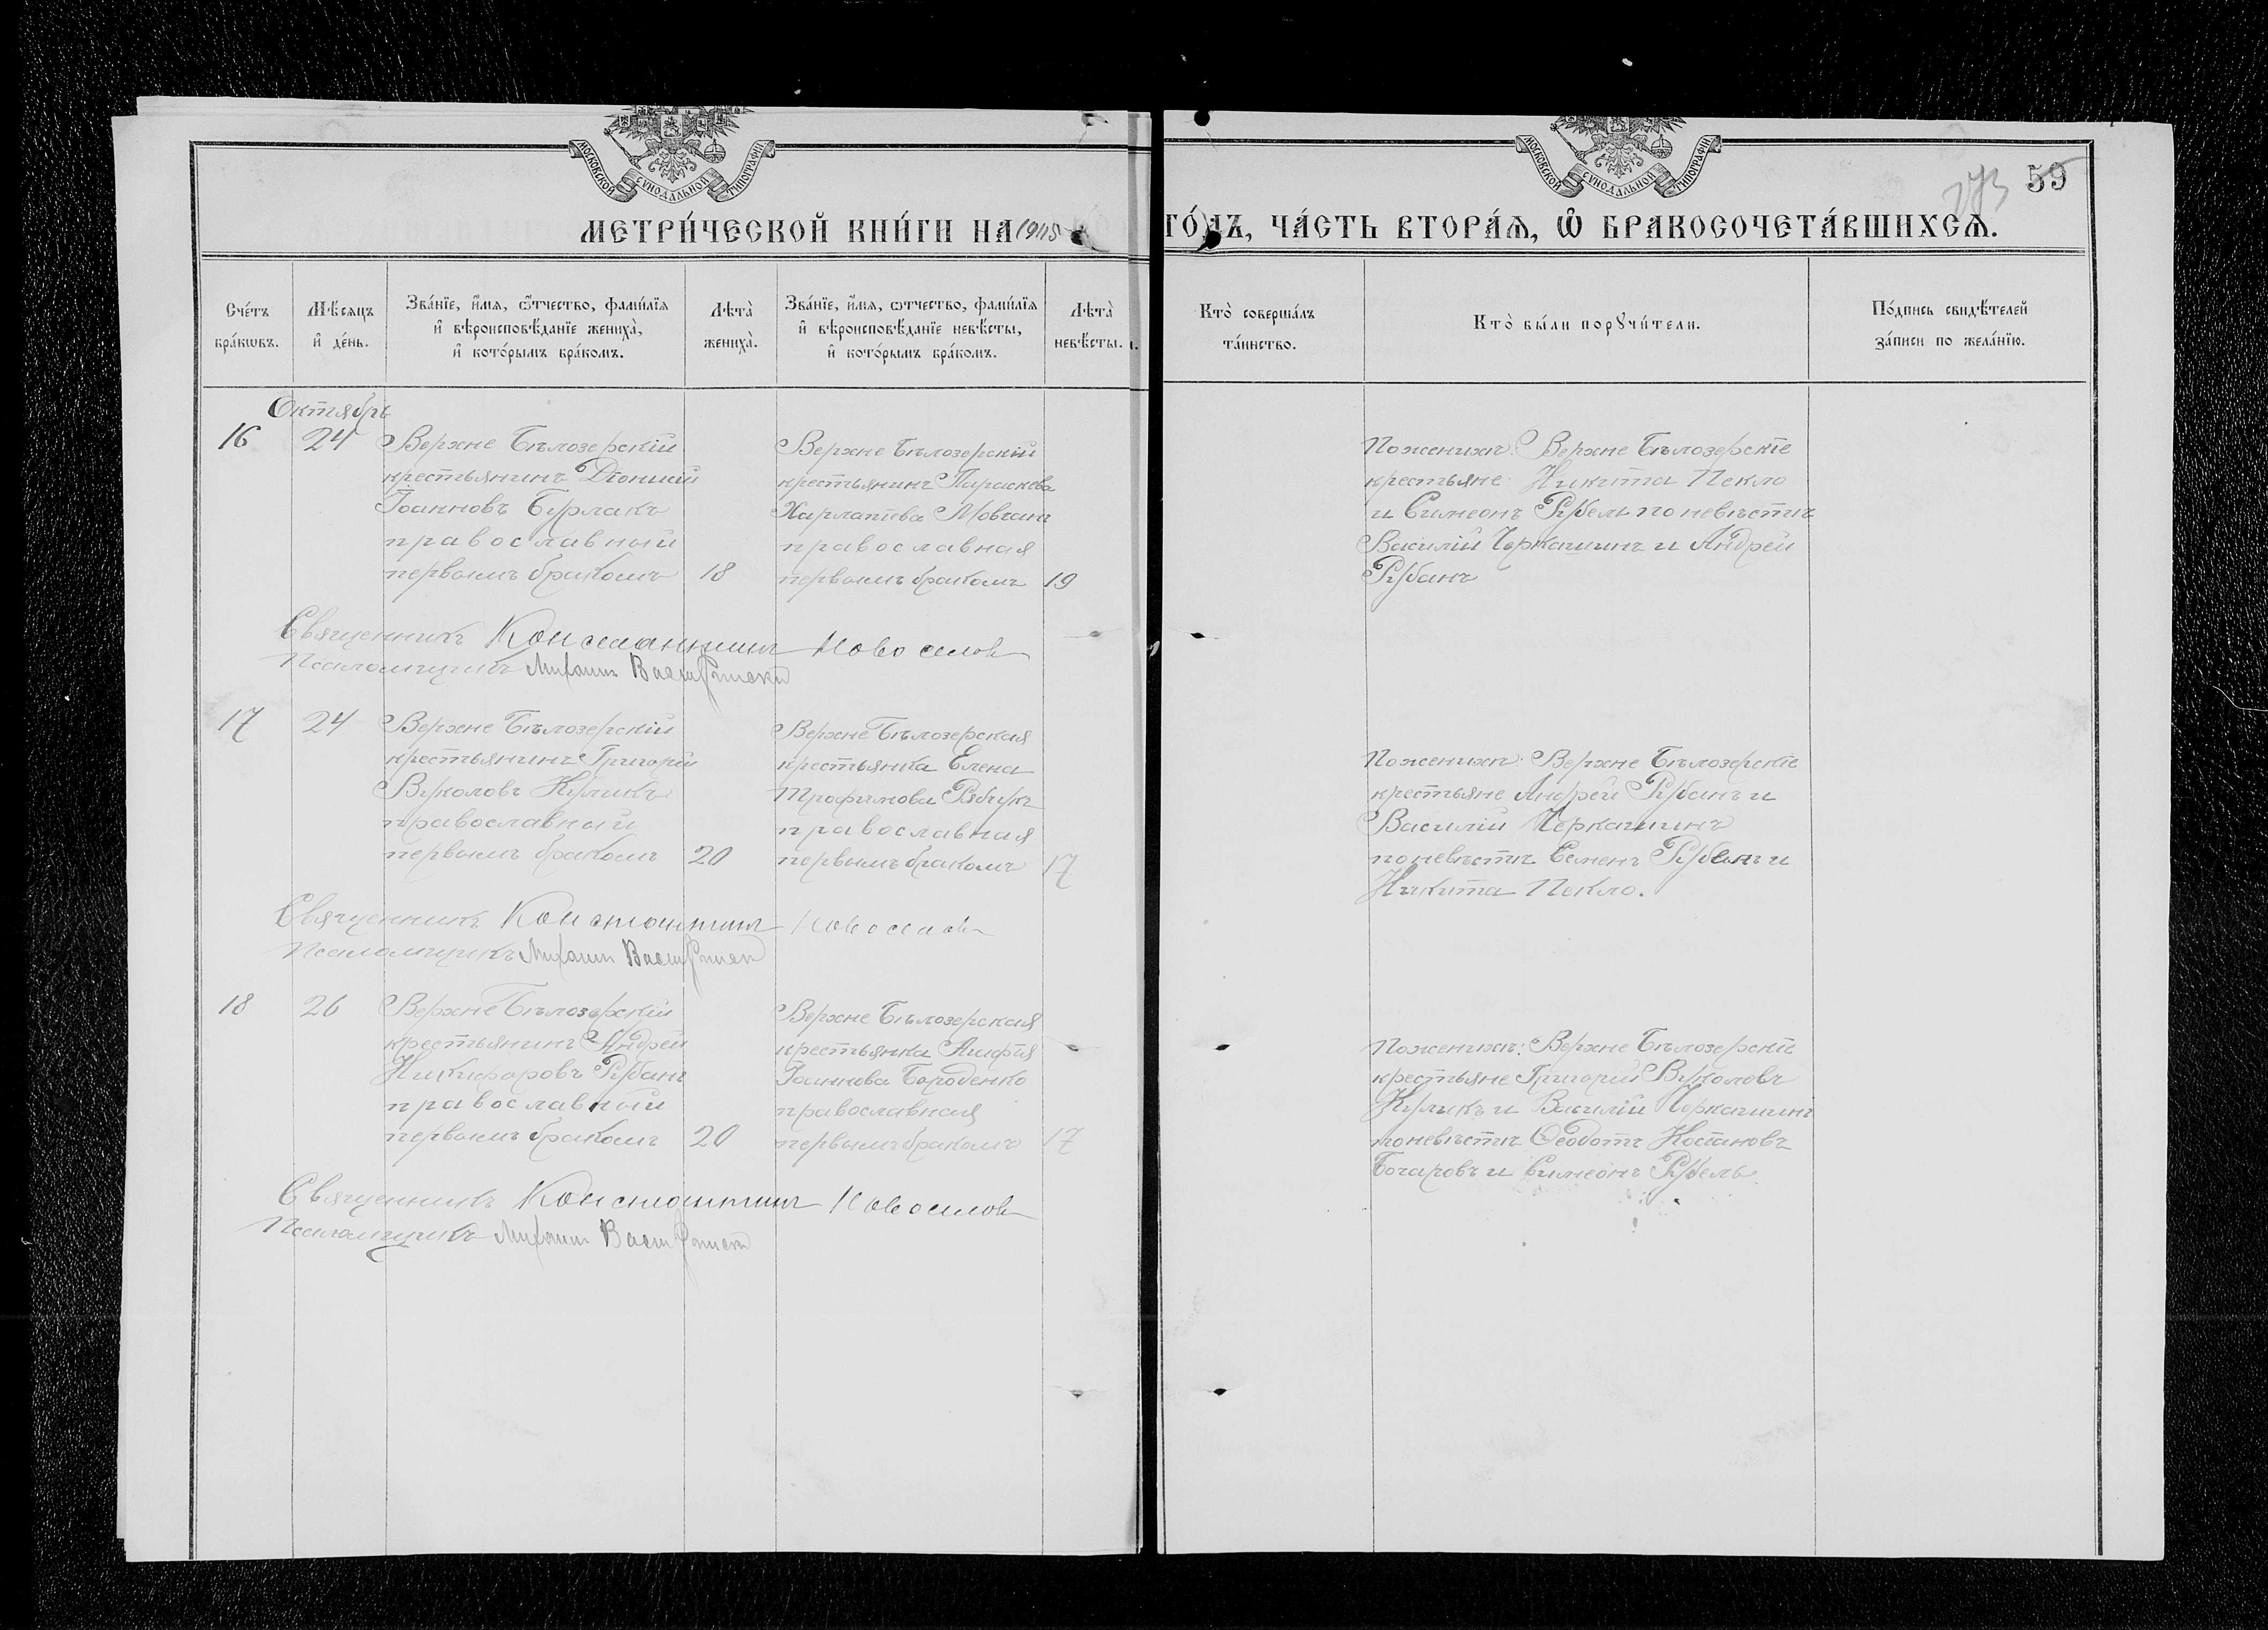 МОСКОВСКОЙ СУНОДАЛЬНОЙ ТИПОГРАФІИ
МОСКОВСКОЙ СУНОДАЛЬНОЙ ТИПОГРАФІИ
59
МЕТРИ́ЧЕСКОЙ КНИ́ГИ НА
ГО́ДЪ, ЧА́СТЬ ВТОРА́Ѧ, Ѡ҆ БРАКОСОЧЕТА́ВШИХСѦ.
Сче́тъ бра́кѡвъ.
Мѣ́сѧцъ и҆ де́нь.
Зва́нїе, и҆́мѧ, ѻ҆́тчество, фами́лїѧ
и҆ вѣроисповѣ́данїе жениха̀,
и҆ кото́рымъ бра́комъ.
Лѣта̀ жениха̀.
Зва́нїе, и҆́мѧ, ѻ҆́тчество, фами́лїѧ
и҆ вѣроисповѣ́данїе невѣ́сты,
и҆ кото́рымъ бра́комъ.
Лѣта̀ невѣ́сты.
Кто̀ соверша́лъ та́инство.
Кто̀ бы́ли порꙋчи́тели.
По́дпись свидѣ́телей за́писи по жела́нїю.
Октябрь
16
24
Верхне Бѣлозерскій
крестьянинъ Діонисій
Іоанновъ Бурлакъ
православный
первымъ бракомъ
18
Верхне Бѣлозерскій
крестьянинъ Параскева
Харлатіева Мовчанъ
православная
первымъ бракомъ
19
По женихѣ: Верхне Бѣлозерскіе
крестьяне Никита Пекло
и Симеонъ Рубель по невѣстѣ
Василій Черкашинъ и Андрей
Рубанъ
Священникъ Константинъ Новоселов
Псаломщикъ Михаилъ
17
24
Верхне Бѣлозерскій
крестьянинъ Григорій
Вуколовъ Куликъ
православный
первымъ бракомъ
20
Верхне Бѣлозерская
крестьянка Елена
Трофимова Рябчукъ
православная
первымъ бракомъ
17
По женихѣ: Верхне Бѣлозерскіе
крестьяне Андрей Рубанъ и
Василій Черкашинъ
по невѣстѣ Семенъ и
Никита Пекло.
Священникъ Константинъ Новоселов
Псаломщикъ Михаилъ
18
26
Верхне Бѣлозерскій
крестьянинъ Андрей
Никифоровъ Рубанъ
православный
первымъ бракомъ
20
Верхне Бѣлозерская
крестьянка
Іоаннова Бороденко
православная
первымъ бракомъ
17
По женихѣ: Верхне Бѣлозерскіе
крестьяне Григорій Вуколовъ
Куликъ и Василій Черкашинъ
по невѣстѣ Ѳеодотъ
Бочаровъ и Симеонъ Рубель.
Священникъ Константинъ Новоселов
Псаломщикъ Михаилъ